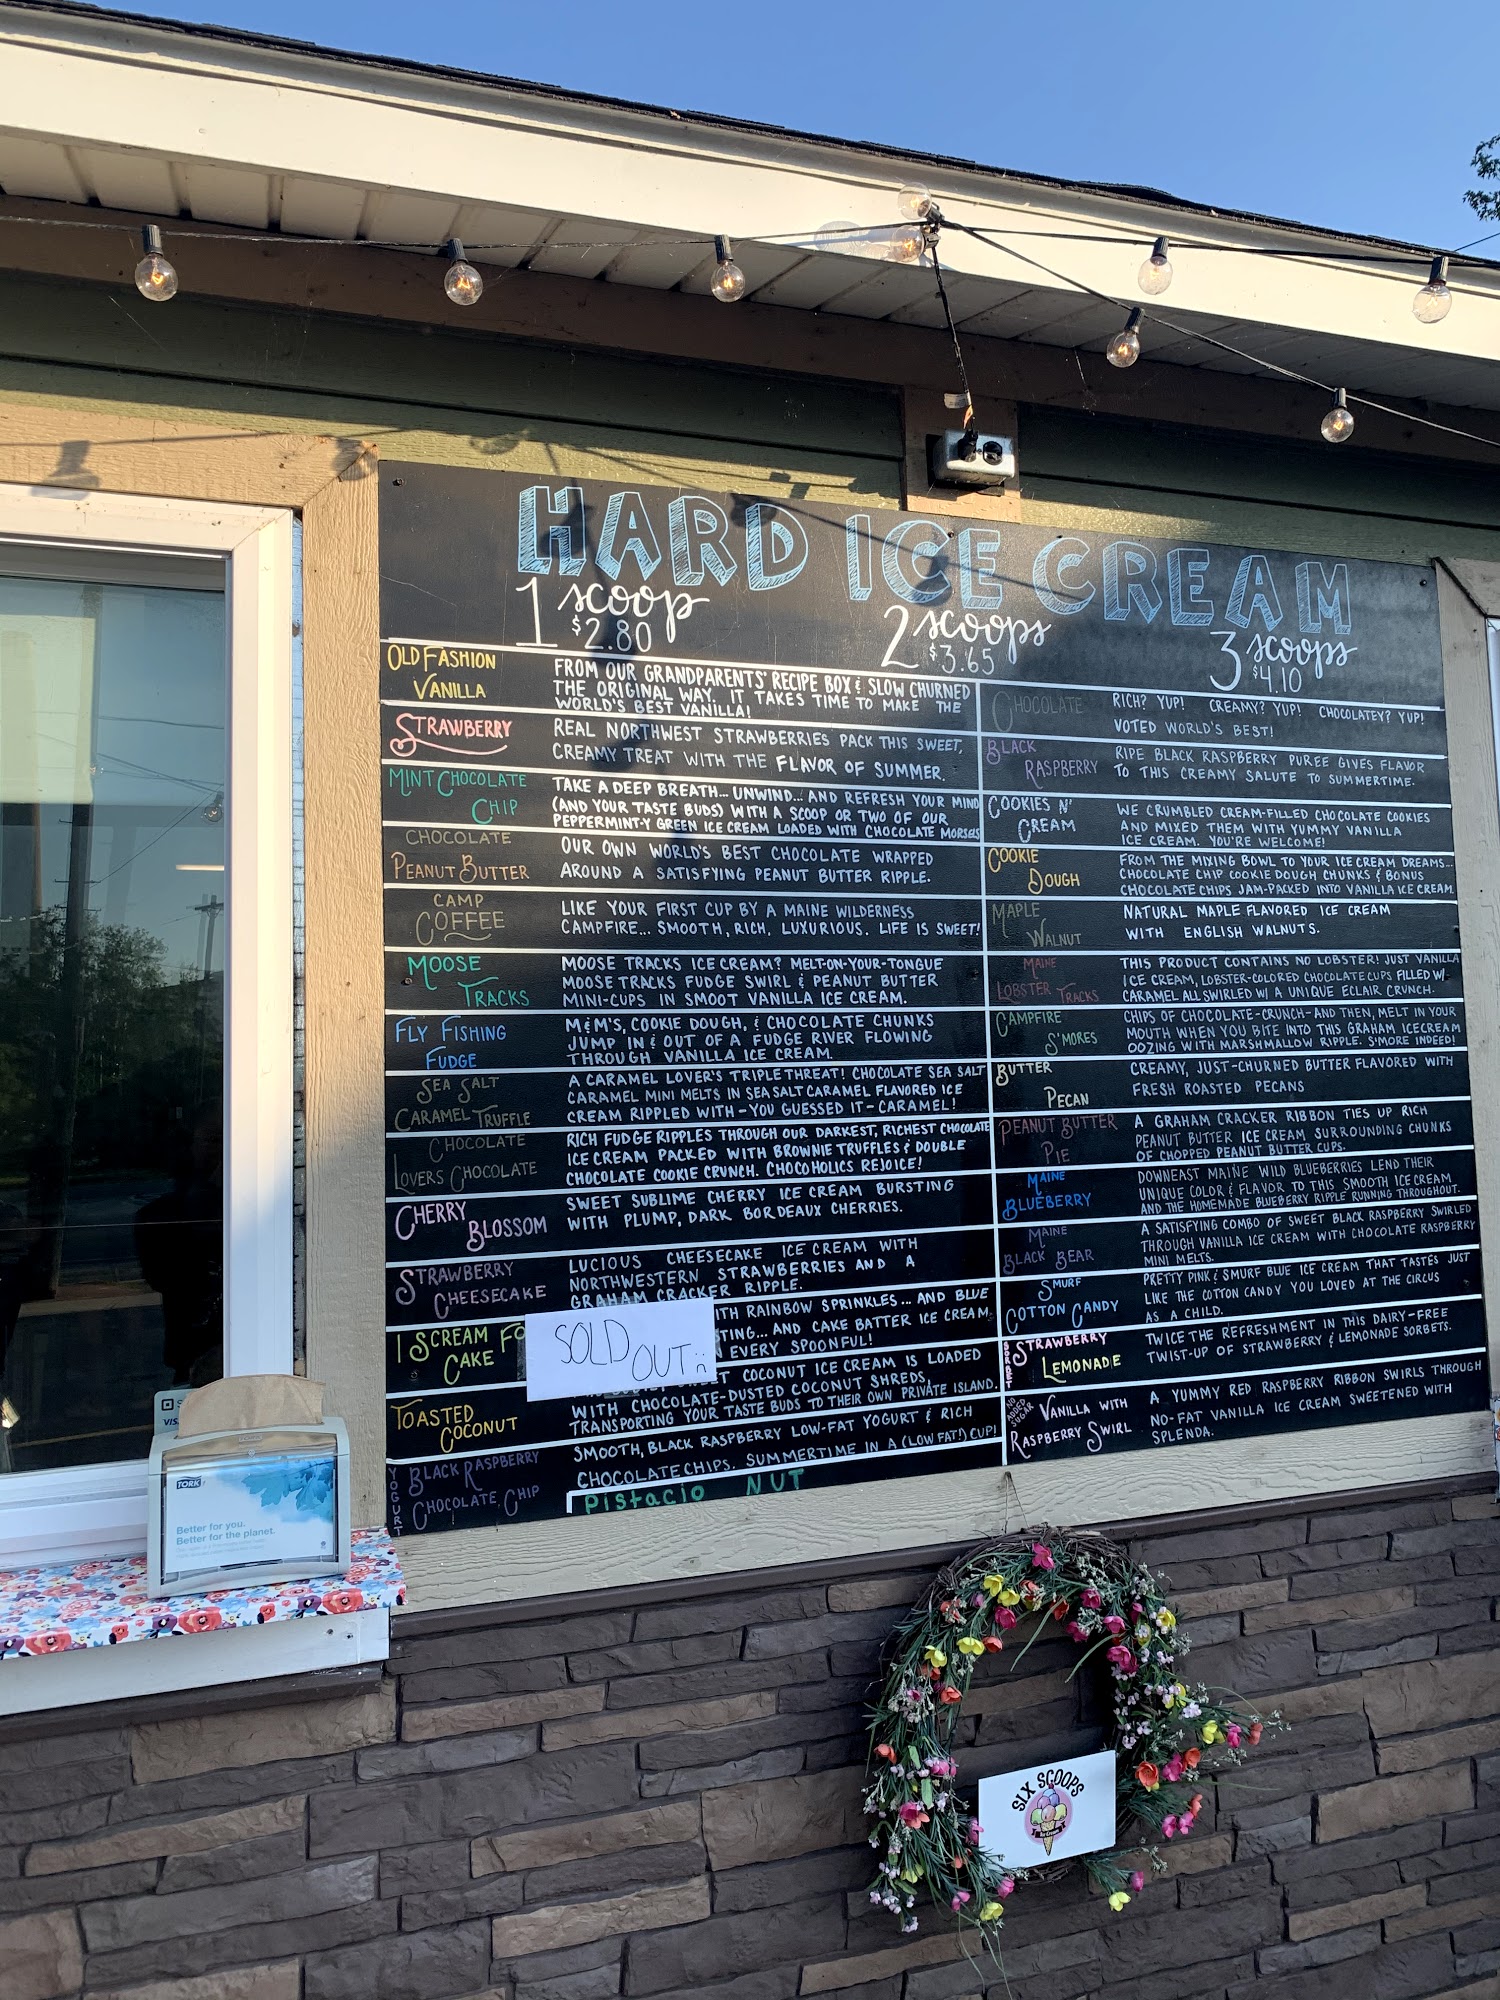 HARD ICE CREAM
1 scoop
$2.80
2 scoops
$3.65
3 scoops
$4.10
OLD FASHION
VANILLA
FROM OUR GRANDPARENTS' RECIPE BOX & SLOW CHURNED
THE ORIGINAL WAY. IT TAKES TIME TO MAKE THE
WORLD'S BEST VANILLA!
STRAWBERRY
REAL NORTHWEST STRAWBERRIES PACK THIS SWEET,
CREAMY TREAT WITH THE FLAVOR OF SUMMER.
MINT CHOCOLATE
CHIP
TAKE A DEEP BREATH... UNWIND... AND REFRESH YOUR MIND
(AND YOUR TASTE BUDS) WITH A SCOOP OR TWO OF OUR
PEPPERMINT-Y GREEN ICE CREAM LOADED WITH CHOCOLATE MORSELS
CHOCOLATE
PEANUT BUTTER
OUR OWN WORLD'S BEST CHOCOLATE WRAPPED
AROUND A SATISFYING PEANUT BUTTER RIPPLE.
CAMP
COFFEE
LIKE YOUR FIRST CUP BY A MAINE WILDERNESS
CAMPFIRE... SMOOTH, RICH, LUXURIOUS. LIFE IS SWEET!
MOOSE
TRACKS
MOOSE TRACKS ICE CREAM? MELT-ON-YOUR-TONGUE
MOOSE TRACKS FUDGE SWIRL & PEANUT BUTTER
MINI-CUPS IN SMOOT VANILLA ICE CREAM.
FLY FISHING
FUDGE
M&M'S, COOKIE DOUGH, & CHOCOLATE CHUNKS
JUMP IN & OUT OF A FUDGE RIVER FLOWING
THROUGH VANILLA ICE CREAM.
SEA SALT
CARAMEL TRUFFLE
A CARAMEL LOVER'S TRIPLE THREAT! CHOCOLATE SEA SALT
CARAMEL MINI MELTS IN SEA SALT CARAMEL FLAVORED ICE
CREAM RIPPLED WITH - YOU GUESSED IT - CARAMEL!
CHOCOLATE
LOVERS CHOCOLATE
RICH FUDGE RIPPLES THROUGH OUR DARKEST, RICHEST CHOCOLATE
ICE CREAM PACKED WITH BROWNIE TRUFFLES & DOUBLE
CHOCOLATE COOKIE CRUNCH. CHOCOHOLICS REJOICE!
CHERRY
BLOSSOM
SWEET SUBLIME CHERRY ICE CREAM BURSTING
WITH PLUMP, DARK BORDEAUX CHERRIES.
STRAWBERRY
CHEESECAKE
LUCIOUS CHEESECAKE ICE CREAM WITH
NORTHWESTERN STRAWBERRIES AND A
GRAHAM CRACKER RIPPLE.
I SCREAM FO
CAKE
SOLD
OUT :(
ITH RAINBOW SPRINKLES... AND BLUE
TING... AND CAKE BATTER ICE CREAM
EVERY SPOONFUL!
TOASTED
COCONUT
COCONUT ICE CREAM IS LOADED
WITH CHOCOLATE-DUSTED COCONUT SHREDS,
TRANSPORTING YOUR TASTE BUDS TO THEIR OWN PRIVATE ISLAND.
YOGURT
BLACK RASPBERRY
CHOCOLATE CHIP
SMOOTH, BLACK RASPBERRY LOW-FAT YOGURT & RICH
CHOCOLATE CHIPS. SUMMERTIME IN A (LOW FAT!) CUP!
Pistacio NUT
CHOCOLATE
RICH? YUP! CREAMY? YUP! CHOCOLATEY? YUP!
VOTED WORLD'S BEST!
BLACK
RASPBERRY
RIPE BLACK RASPBERRY PUREE GIVES FLAVOR
TO THIS CREAMY SALUTE TO SUMMERTIME.
COOKIES N'
CREAM
WE CRUMBLED CREAM-FILLED CHOCOLATE COOKIES
AND MIXED THEM WITH YUMMY VANILLA
ICE CREAM. YOU'RE WELCOME!
COOKIE
DOUGH
FROM THE MIXING BOWL TO YOUR ICE CREAM DREAMS...
CHOCOLATE CHIP COOKIE DOUGH CHUNKS & BONUS
CHOCOLATE CHIPS JAM-PACKED INTO VANILLA ICE CREAM
MAPLE
WALNUT
NATURAL MAPLE FLAVORED ICE CREAM
WITH ENGLISH WALNUTS.
MAINE
LOBSTER TRACKS
THIS PRODUCT CONTAINS NO LOBSTER! JUST VANILLA
ICE CREAM, LOBSTER-COLORED CHOCOLATE CUPS FILLED W/
CARAMEL ALL SWIRLED W/ A UNIQUE ECLAIR CRUNCH.
CAMPFIRE
S'MORES
CHIPS OF CHOCOLATE-CRUNCH-AND THEN, MELT IN YOUR
MOUTH WHEN YOU BITE INTO THIS GRAHAM ICECREAM
OOZING WITH MARSHMALLOW RIPPLE. S'MORE INDEED!
BUTTER
PECAN
CREAMY, JUST-CHURNED BUTTER FLAVORED WITH
FRESH ROASTED PECANS
PEANUT BUTTER
PIE
A GRAHAM CRACKER RIBBON TIES UP RICH
PEANUT BUTTER ICE CREAM SURROUNDING CHUNKS
OF CHOPPED PEANUT BUTTER CUPS.
MAINE
BLUEBERRY
DOWNEAST MAINE WILD BLUEBERRIES LEND THEIR
UNIQUE COLOR & FLAVOR TO THIS SMOOTH ICE CREAM
AND THE HOMEMADE BLUEBERRY RIPPLE RUNNING THROUGHOUT.
MAINE
BLACK BEAR
A SATISFYING COMBO OF SWEET BLACK RASPBERRY SWIRLED
THROUGH VANILLA ICE CREAM WITH CHOCOLATE RASPBERRY
MINI MELTS.
SMURF
COTTON CANDY
PRETTY PINK & SMURF BLUE ICE CREAM THAT TASTES JUST
LIKE THE COTTON CANDY YOU LOVED AT THE CIRCUS
AS A CHILD.
SORBET
STRAWBERRY
LEMONADE
TWICE THE REFRESHMENT IN THIS DAIRY-FREE
TWIST-UP OF STRAWBERRY & LEMONADE SORBETS.
NO ADDED SUGAR
VANILLA WITH
RASPBERRY SWIRL
A YUMMY RED RASPBERRY RIBBON SWIRLS THROUGH
NO-FAT VANILLA ICE CREAM SWEETENED WITH
SPLENDA.
VISA
TORK
Better for you.
Better for the planet.
SIX SCOOPS
Ice Cream